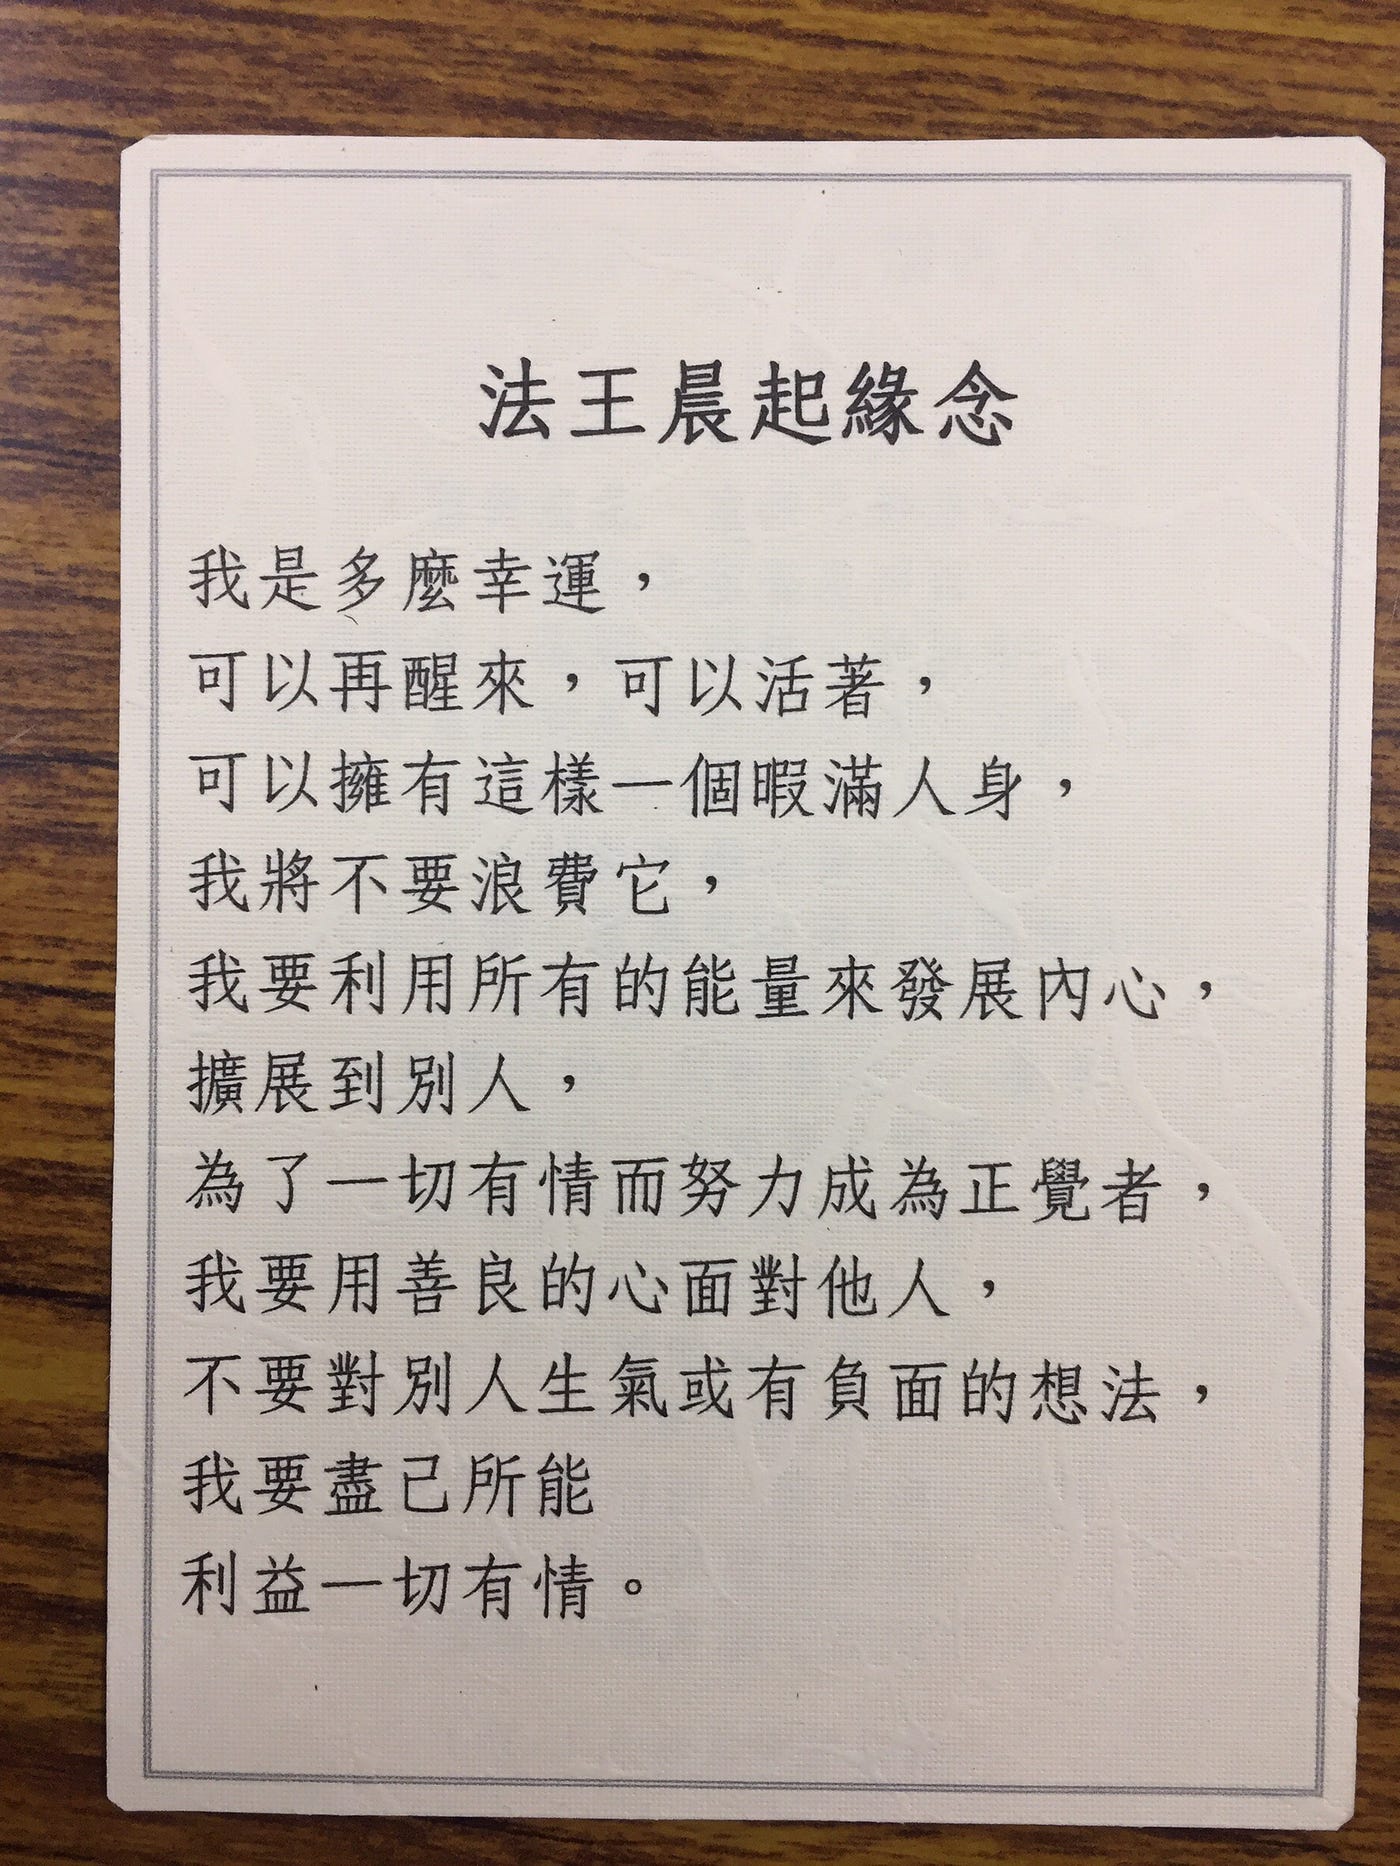 法王晨起緣念
我是多麼幸運，
可以再醒來，可以活著，
可以擁有這樣一個暇滿人身，
我將不要浪費它，
我要利用所有的能量來發展內心，
擴展到別人，
為了一切有情而努力成為正覺者，
我要用善良的心面對他人，
不要對別人生氣或有負面的想法，
我要盡己所能
利益一切有情。